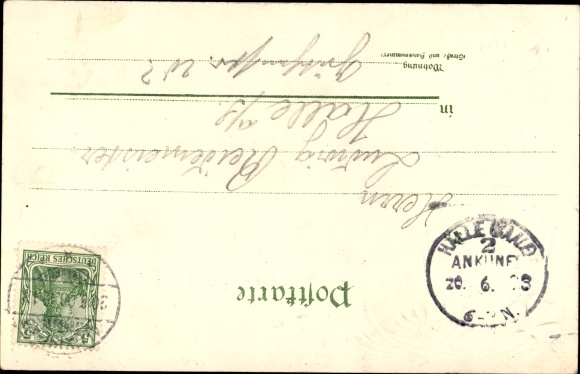 Postkarte
Herrn
Ludwig Reidemeister
in
Halle a/S
Wohnung
(Straße und Hausnummer)
DEUTSCHES REICH
5 5
HALLE (SAALE)
2
ANKUNFT
20. 6. 03
6-7 N.